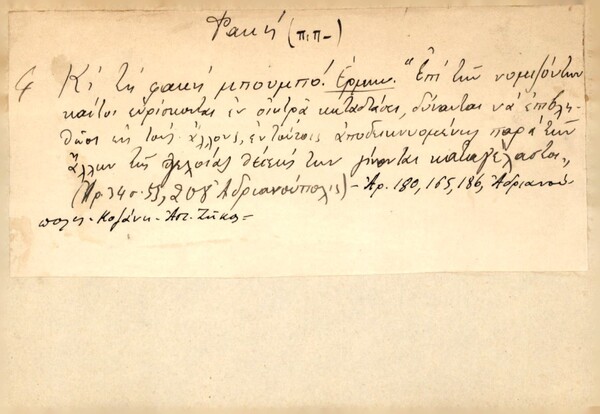 Φακή (π.π–)
4 Κὶ τὴ φακή μπουμπό! Ἑρμην. "Ἐπὶ τῶν νομιζόντων
καίτοι εὑρίσκονται ἐν οἰκτρᾷ καταστάσει, δύνανται νὰ ἐπιβλη-
θῶσι εἰς τοὺς ἄλλους, ἐν τούτοις ἀποδεικνυομένης παρὰ τῶν
ἄλλων τῆς γελοίας θέσεώς των γίνονται καταγέλαστοι"
(Ἀρ. 34 σ. 208 Ἀδριανούπολις) – Ἀρ. 180, 165, 186, Ἀδριανού-
πολις - Κοζάνη -